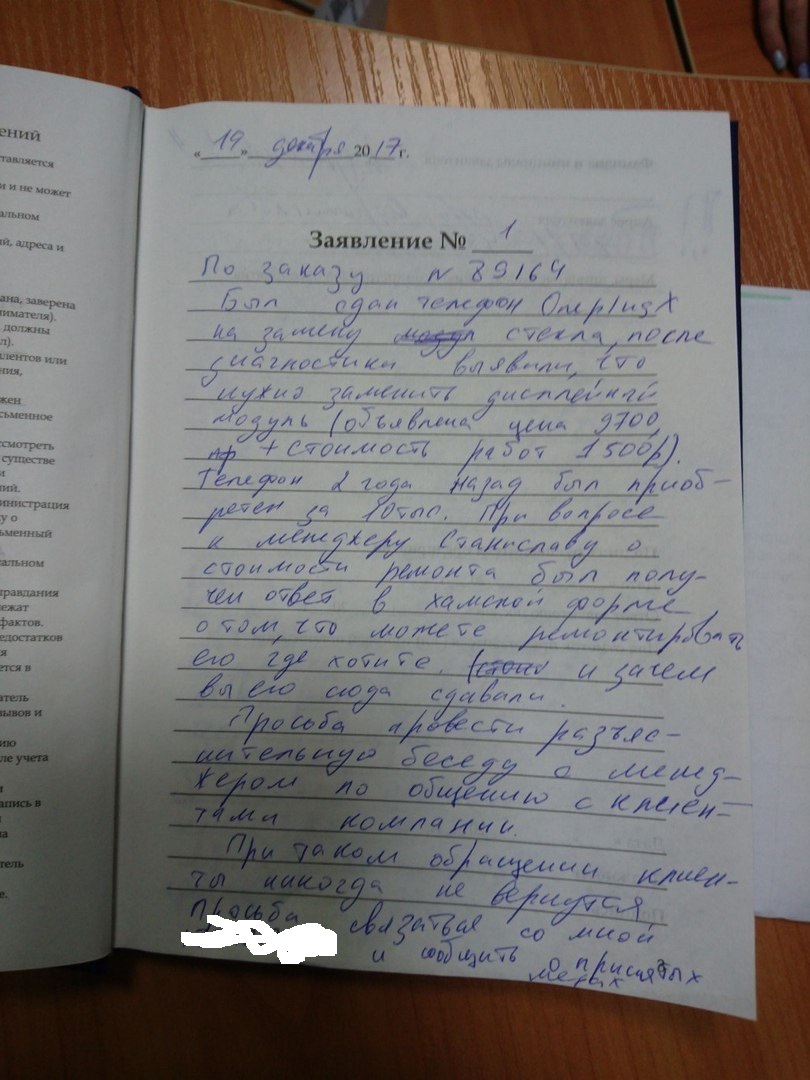 ений
тавляется
и и не может
альном
й, адреса и
ана, заверена
нимателя).
должны
л).
лентов или
ния,
жен.
сьменное
ссмотреть
существе
и
ний.
инистрация
у о
ьменный
альном
травдания
ежат
фактов.
едостатков
я
ется в
атель
ывов и
ию
ле учета
и
апись в
а
тель
е.
«19» декабря 2017г.
Заявление № 1
По заказу № 89164
Был сдан телефон OneplusX
на замену стекла, после
диагностики выявили, что
нужно заменить дисплейный
модуль (объявлена цена 9700,
+ стоимость работ 1500р).
Телефон 2 года назад был приоб-
ретен за 10тыс. При вопросе
к менеджеру Станиславу о
стоимости ремонта был полу-
чен ответ в хамской форме
о том, что можете ремонтировать
его где хотите. и зачем
вы его сюда сдавали.
Просьба провести разъяс-
нительную беседу с менед-
жером по общению с клиен-
тами компании.
При таком обращении клиен-
ты никогда не вернутся
Просьба связаться со мной
и сообщить о принятых
мерах